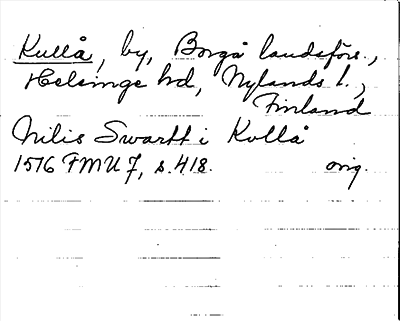 Kullå, by, Borgå landsförs.,
Helsinge hd, Nylands l.,
Finland
Nilis Swartt i Kullå
1516 FMU 7, s. 418. orig.